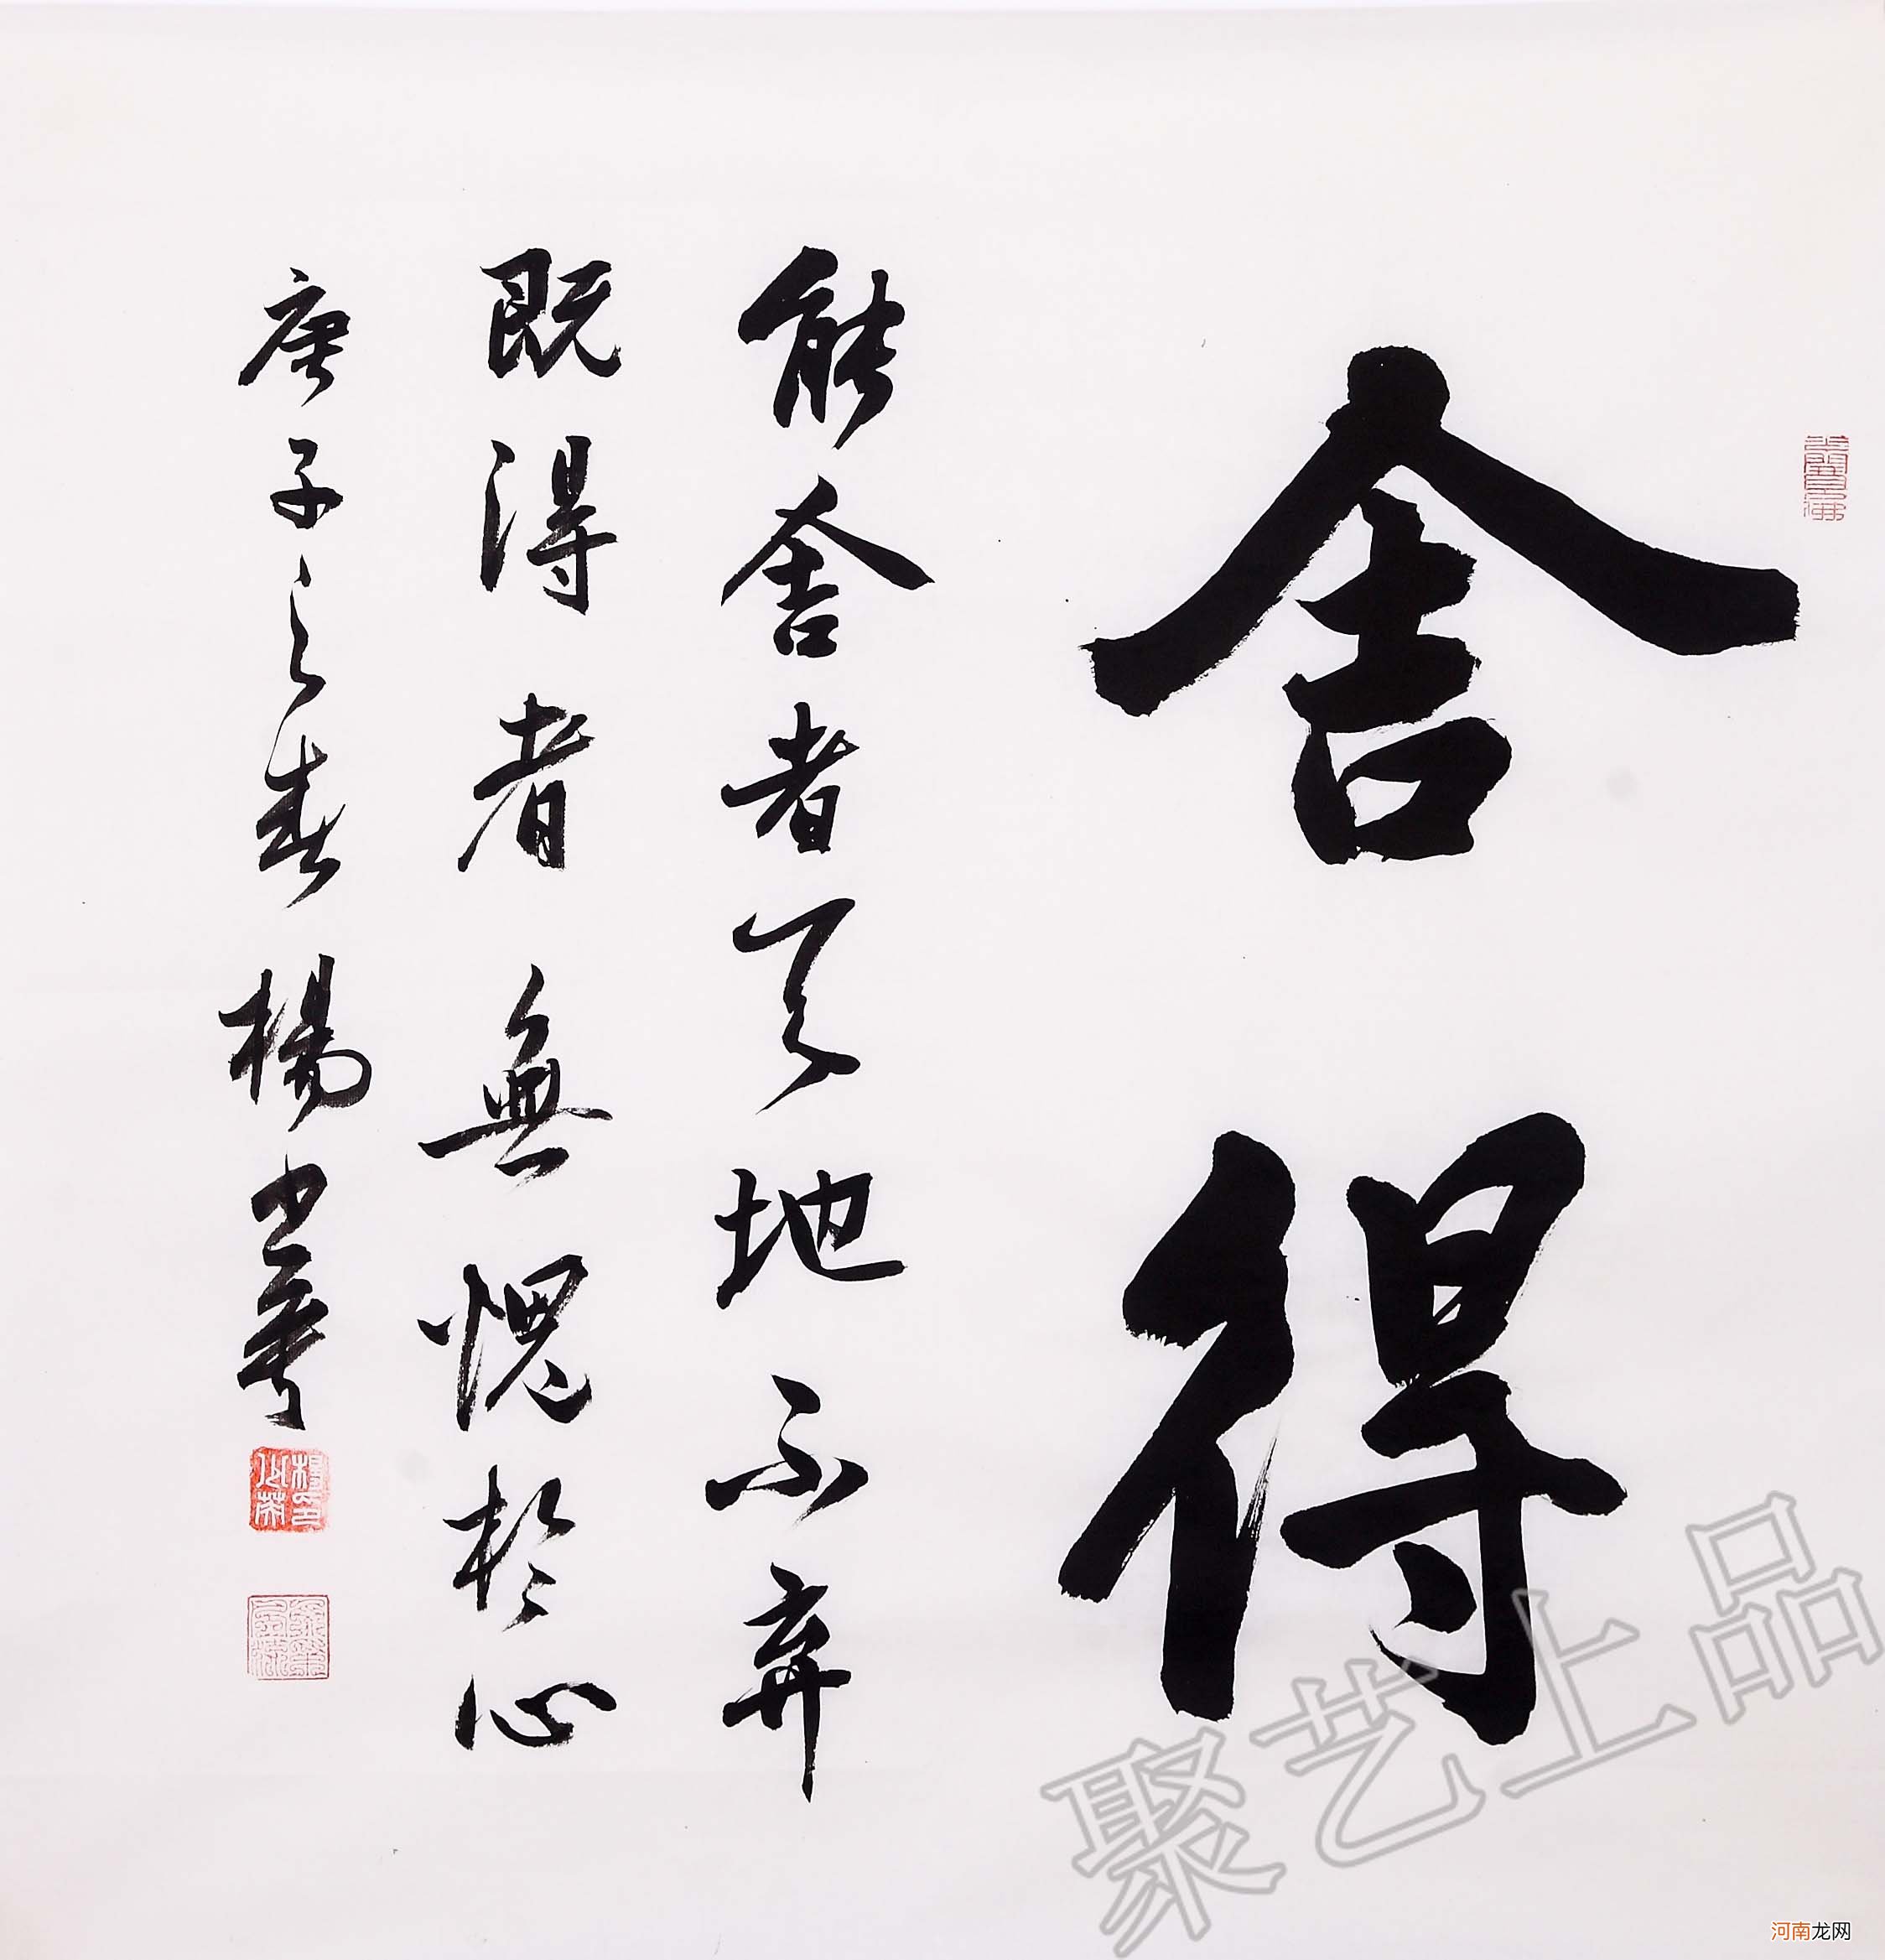 舍得
能舍者天地不弃
既得者無愧於心
庚子之春 楊少華
聚艺上品
河南龙网